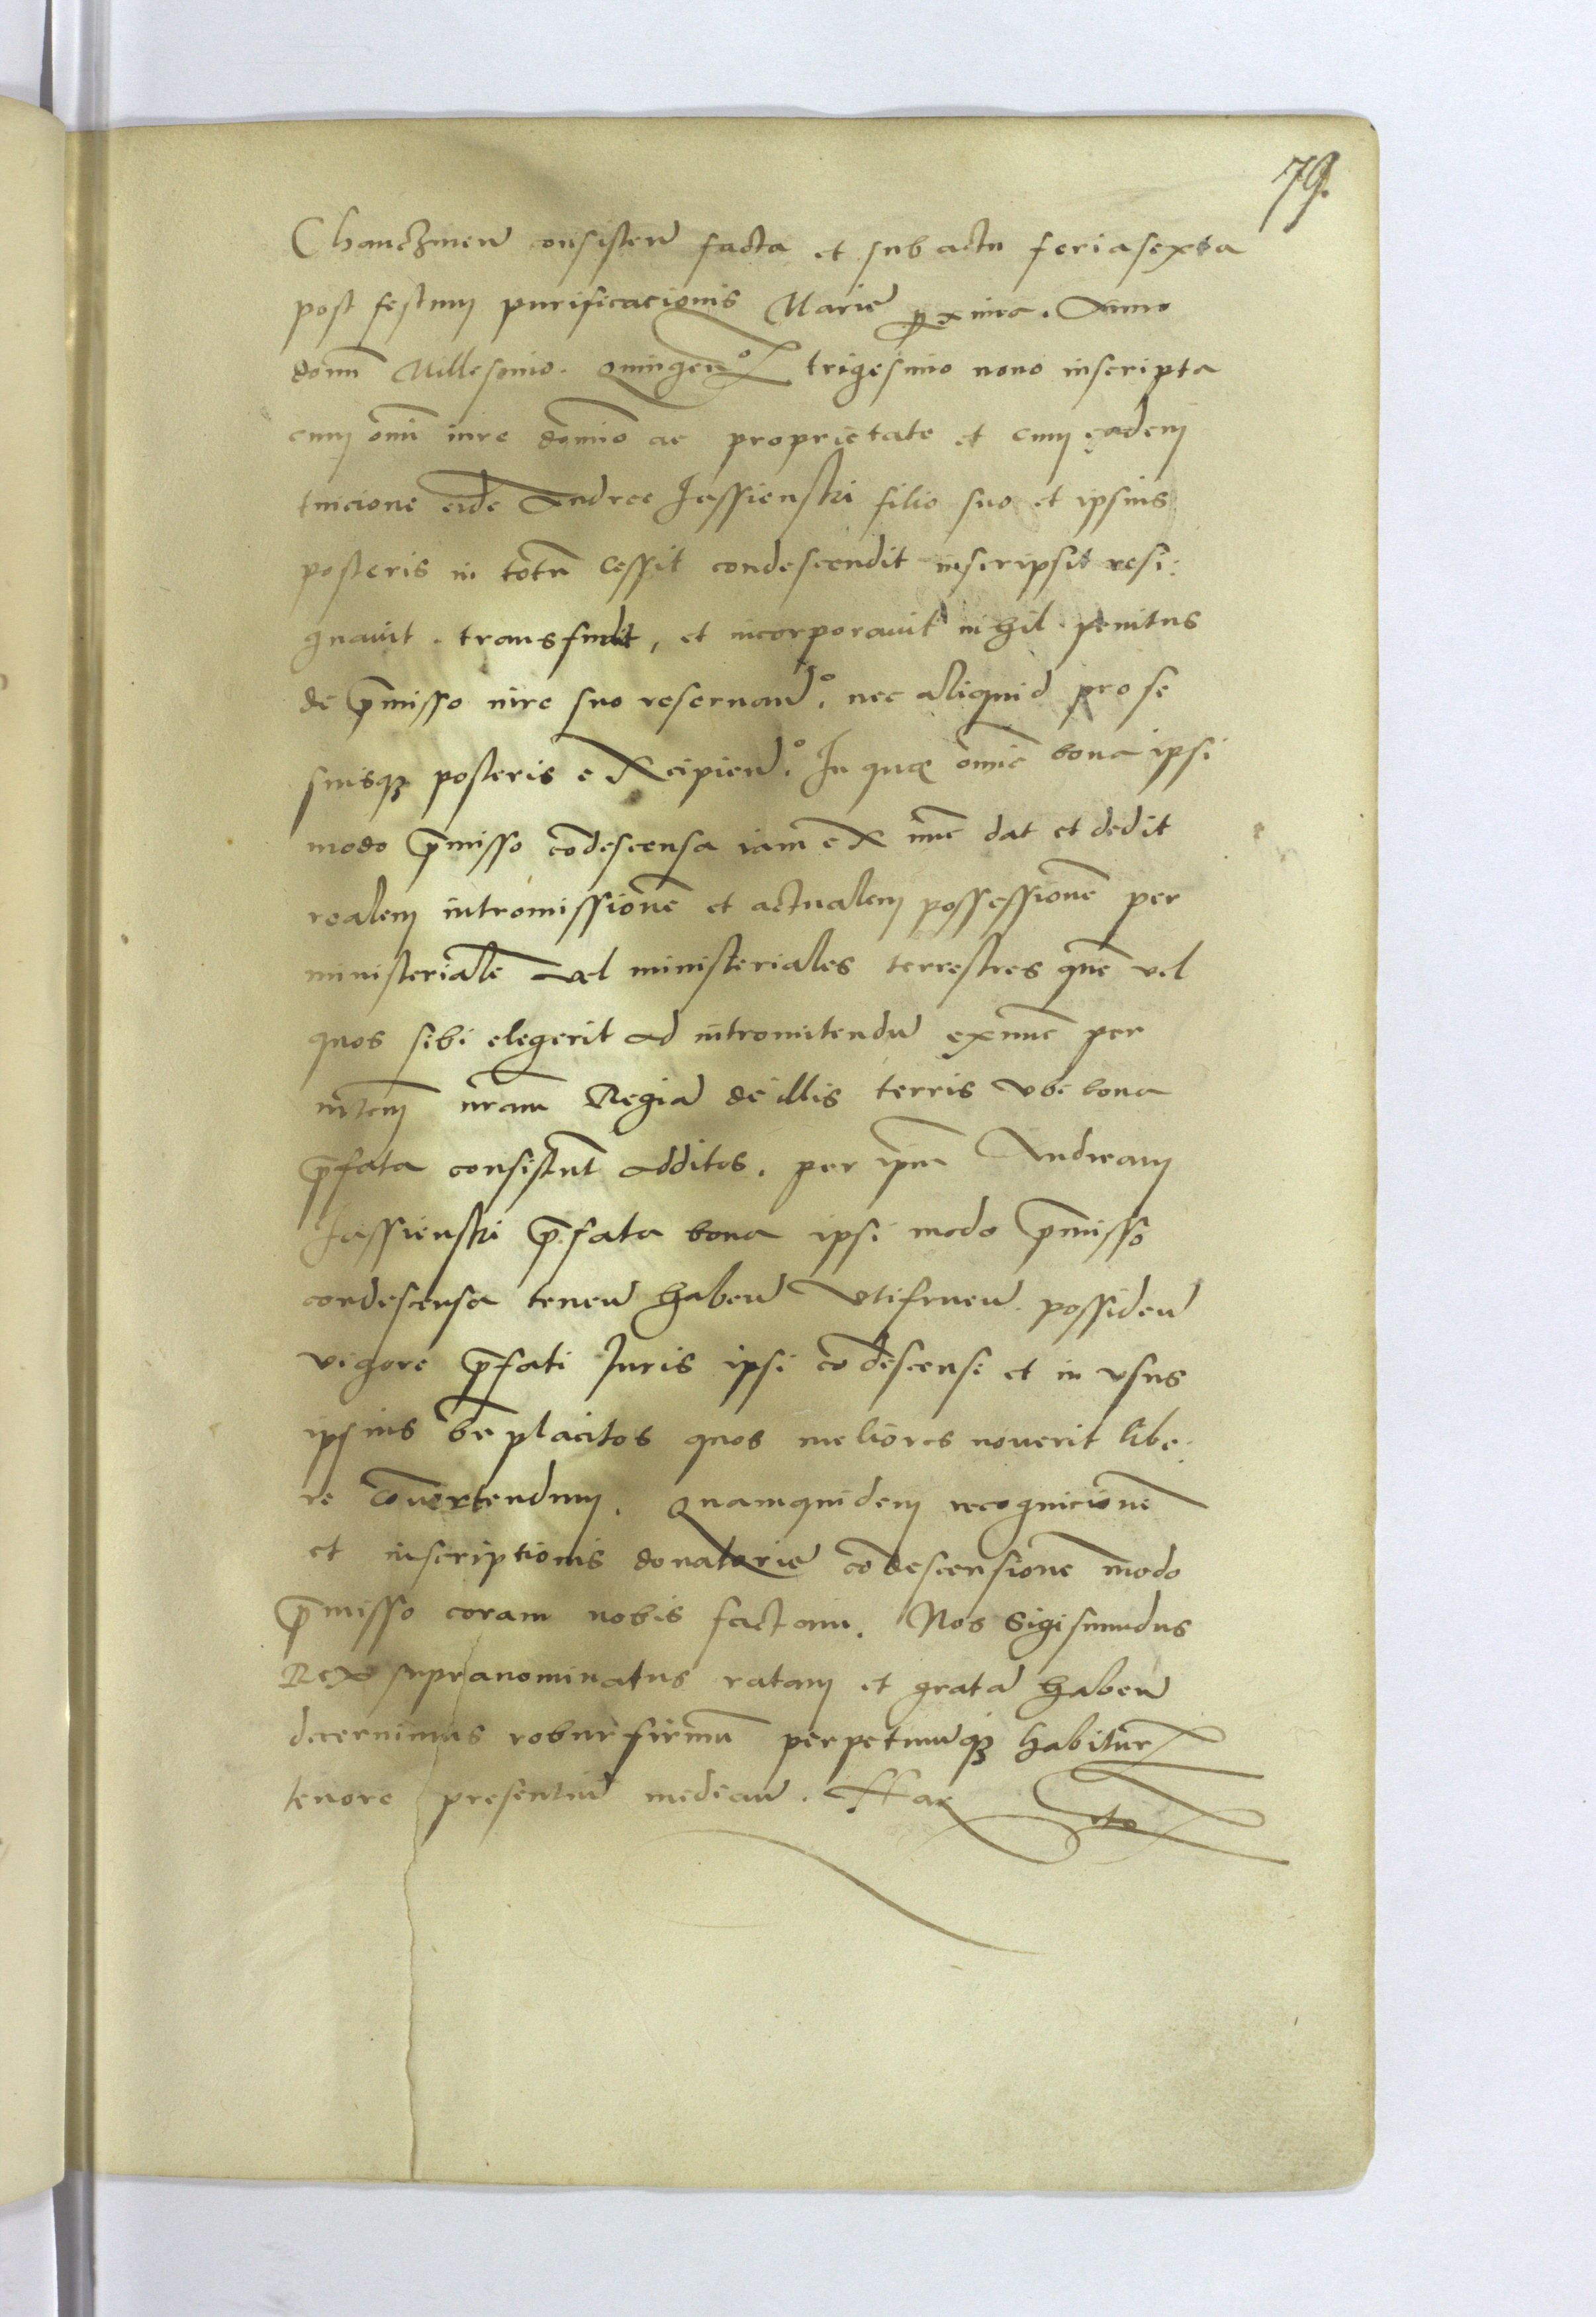 79.
Chanczinen͂ consisten͂ facta et sub actu feria sexta
post festum purificacionis Marie ꝓxime. Anno
domͥ Millesimo. Quingenº trigesimo nono inscripta
cum omͥ iure domīo ac proprietate et cum eadem
tuicione eidē Andree Jassienski filio suo et ipsius
posteris in totū cessit condescendit inscripsit resi:
gnavit. transfudit, et incorporavit nihil penitus
de p̄misso iure suo reservanº. nec aliquid pro se
suisqꝫ posteris excipienº. In que omīa bona ipsi
modo p̄misso cōdescensa iam ex nūc dat et dedit
realem intromissionē et actualem possessionē per
ministerialē vel ministeriales terrestres quē vel
quos sibi elegerit ad intromitendū exnūc per
mͭtem nr̄am Regiā de illis terris ubi bona
p̄fata consistunt additos. per ip̄m Andream
Jassienski p̄fata bona ipsi modo p̄misso
condescensa tenen͂ haben͂ utifruen͂ possiden͂
vigore p̄fati Juris ipsi cōdescensi et in usus
ipsius bn̄placitos quos meliores noverit libe:
re cōvertendum. Quamquidem recognicionē
et inscriptionis donatorie cōdescensionē modo
p̄misso coram nobis factam. Nos Sigismundus
Rex supranominatus ratam et gratā haben͂
decernimus robur firmū perpetuumqꝫ habitur
tenore presentiū median͂. Har etc